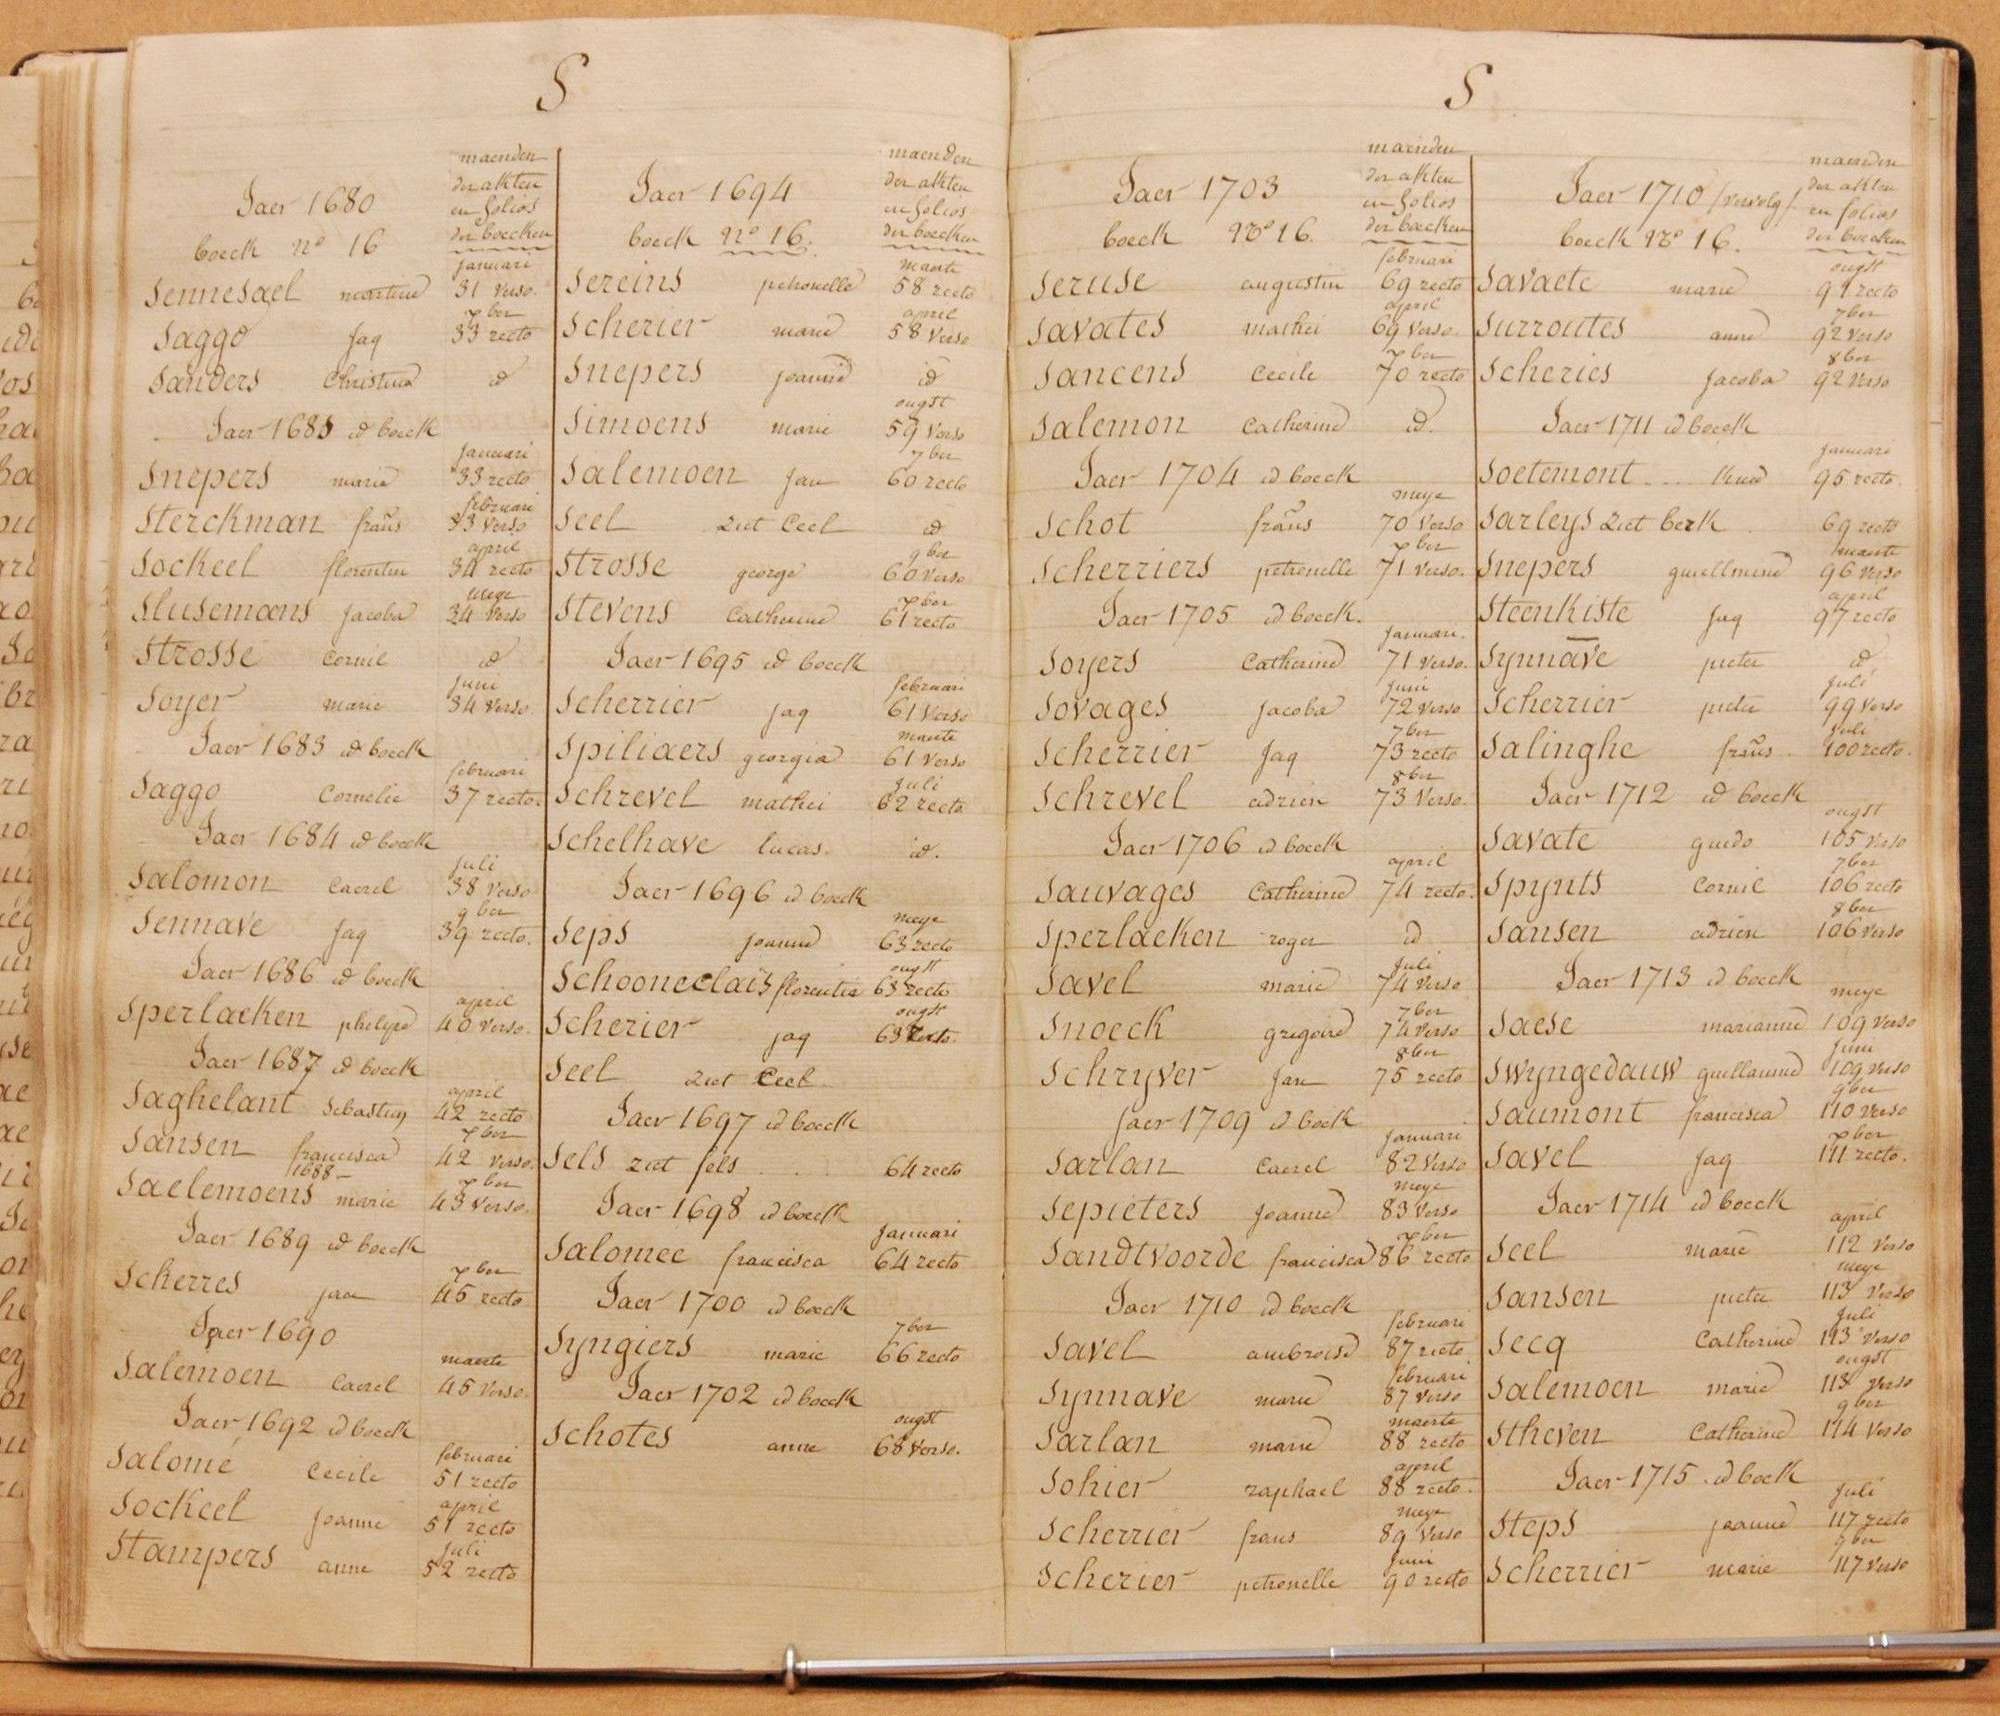 S
Jaer 1680
maenden
der akten
en folios
der boecken
boeck nº 16
januari
Sennesael martine 31 verso.
7ber
Saggo jaq 33 recto
Sanders Christina id
Jaer 1681 id boeck
januari
Snepers marie 33 recto
februari
Sterckman frans 33 verso
april
Sockeel florentin 34 recto
meye
Slusemans jacoba 34 verso
Strosse cornil id
juni
Soyer marie 34 verso.
Jaer 1683 id boeck
februari
Saggo Cornelie 37 recto.
Jaer 1684 id boeck
juli
Salomon Caerel 38 verso
9ber
Sennave jaq 39 recto.
Jaer 1686 id boeck
april
Sperlaeken 40 verso.
Jaer 1687 id boeck
april
Saghelant Sebastien 42 recto
7ber
Sansen francisca 42 verso.
1688 -
7ber
Saelemoens marie 43 verso.
Jaer 1689 id boeck
7ber
Scherres jan 45 recto
Jaer 1690
maerte
Salemoen Caerel 45 verso.
Jaer 1692 id boeck
februari
Salomé Cecile 51 recto
april
Sockeel joanne 51 recto
juli
Stampers anne 52 recto
Jaer 1694
maenden
der akten
en folios
der boecken
boeck nº 16.
maerte
Sereins petronelle 58 recto
april
Scherier marie 58 verso
Snepers joanne id
ougst
Simoens marie 59 verso
7ber
Salemoen jan 60 recto
Seel ziet Ceel id
9ber
Strosse george 60 verso
7ber
Stevens Catherine 61 recto
Jaer 1695 id boeck
februari
Scherrier jaq 61 verso
maerte
Spiliaers georgia 61 verso
juli
Schrevel mathei 62 recto
Schelhave lucas. id.
Jaer 1696 id boeck
meye
Seps joanne 63 recto
ougst
Schooneclais florentia 63 recto
ougst
Scherier jaq 63
Seel ziet Ceel
Jaer 1697 id boeck
Sels ziet fels 64 recto
Jaer 1698 id boeck
januari
Salomee francisca 64 recto
Jaer 1700 id boeck
7ber
Syngiers marie 66 recto
Jaer 1702 id boeck
ougst
Schotes anne 68 verso.
S
Jaer 1703
maenden
der akten
en folios
der boecken
boeck nº 16.
februari
Seruse augustin 69 recto
april
Savates mathei 69 verso.
7ber
Sancens Cecile 70 recto
Salemon Catherine id.
Jaer 1704 id boeck
meye
Schot frans 70 verso
7ber
Scherriers petronelle 71 verso.
Jaer 1705 id boeck.
januari.
Soyers Catherine 71 verso.
juni
Sovages jacoba 72 verso
7ber
Scherrier jaq 73 recto
8ber
Schrevel adrien 73 verso.
Jaer 1706 id boeck
april
Sauvages Catherine 74 recto.
Sperlaeken roger id
juli
Savel marie 74 verso
7ber
Snoeck gregoire 74 verso
8ber
Schryver jan 75 recto
jaer 1709 id boeck
januari
Sarlan Caerel 82 verso
meye
Sepieters joanne 83 verso
7ber
Sandtvoorde francisca 86 recto
Jaer 1710 id boeck
februari
Savel ambroise 87 recto
februari
Synnave marie 87 verso
maerte
Sarlan marie 88 recto
april
Sohier raphael 88 recto.
meye
Scherrier frans 89 verso
juni
Scherier petronelle 90 recto
Jaer 1710 /vervolg/
maenden
der akten
en folios
der boecken
boeck nº 16.
ougst
Savaete marie 91 recto
7ber
Surroutes anne 92 verso
8ber
Scheries jacoba 92 verso
Jaer 1711 id boeck
januari
Soetemont 95 recto.
Sarleys ziet berk 69 recto
maerte
Snepers guillmine 96 verso
april
Steenkiste jaq 97 recto
Synnave pieter id
juli
Scherrier pieter 99 verso
juli
Salinghe frans. 100 recto.
Jaer 1712 id boeck
ougst
Savate guido 105 verso
7ber
Spynts Cornil 106 recto
8ber
Sansen adrien 106 verso
Jaer 1713 id boeck
meye
Saese marianne 109 verso
juni
Swyngedauw guillaume 109 verso
9ber
Saumont francisca 110 verso
7ber
Savel jaq 111 recto.
Jaer 1714 id boeck
april
Seel marie 112 verso
meye
Sansen pieter 113 verso
juli
Secq Catherine 113 verso
ougst
Salemoen marie 113 verso
9ber
Stheven Catherine 114 verso
Jaer 1715. id boeck
juli
Steps joanne 117 recto
9ber
Scherrier marie 117 verso